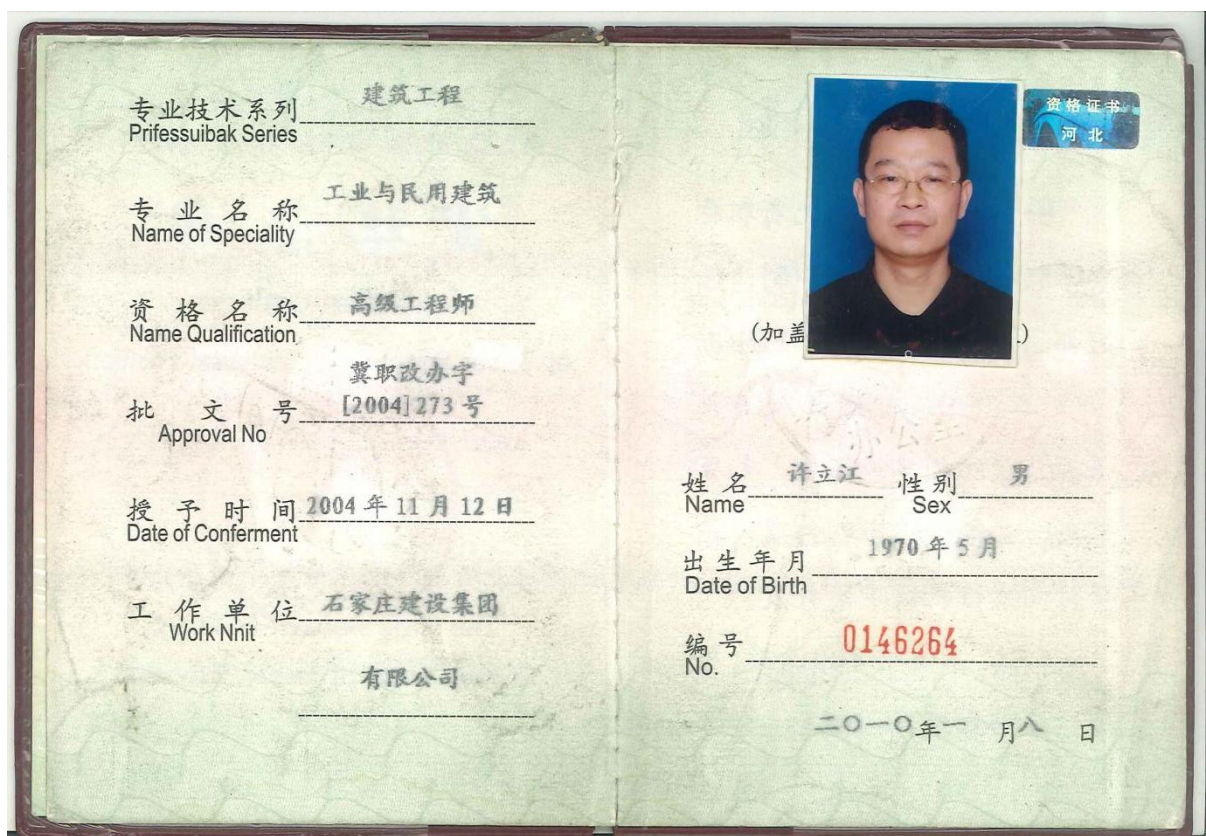 专业技术系列 建筑工程
Prifessuibak Series
专业名称 工业与民用建筑
Name of Speciality
资格名称 高级工程师
Name Qualification
冀职改办字
批文号 [2004]273号
Approval No
授予时间 2004年11月12日
Date of Conferment
工作单位 石家庄建设集团
Work Nnit
有限公司
资格证书
河北
(加盖
)
办公室
姓名 许立江 性别 男
Name Sex
出生年月 1970年5月
Date of Birth
编号 0146264
No.
二〇一〇年一月八日